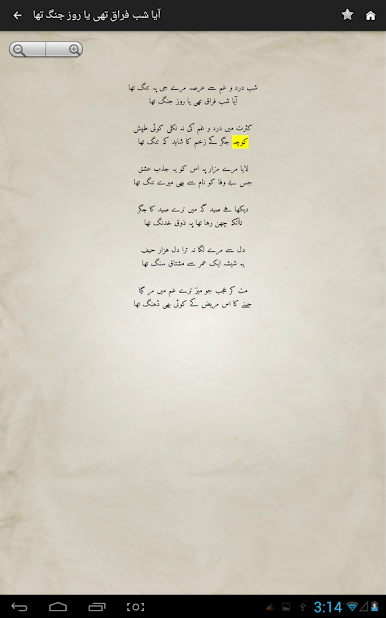 آیا شب فراق تھی یا روز جنگ تھا
شب درد و غم سے عرصہ مرے جی پہ تنگ تھا
آیا شب فراق تھی یا روز جنگ تھا
کثرت میں درد و غم کی نہ نکلی کوئی طپش
کوچہ جگر کے زخم کا شاید کہ تنگ تھا
لایا مرے مزار پہ اس کو یہ جذب عشق
جس بے وفا کو نام سے بھی میرے ننگ تھا
دیکھا ہے صید گہ میں ترے صید کا جگر
باآنکہ چھن رہا تھا پہ ذوق خدنگ تھا
دل سے مرے لگا نہ ترا دل ہزار حیف
یہ شیشہ ایک عمر سے مشتاق سنگ تھا
مت کر عجب جو میر ترے غم میں مر گیا
جینے کا اس مریض کے کوئی بھی ڈھنگ تھا
3:14